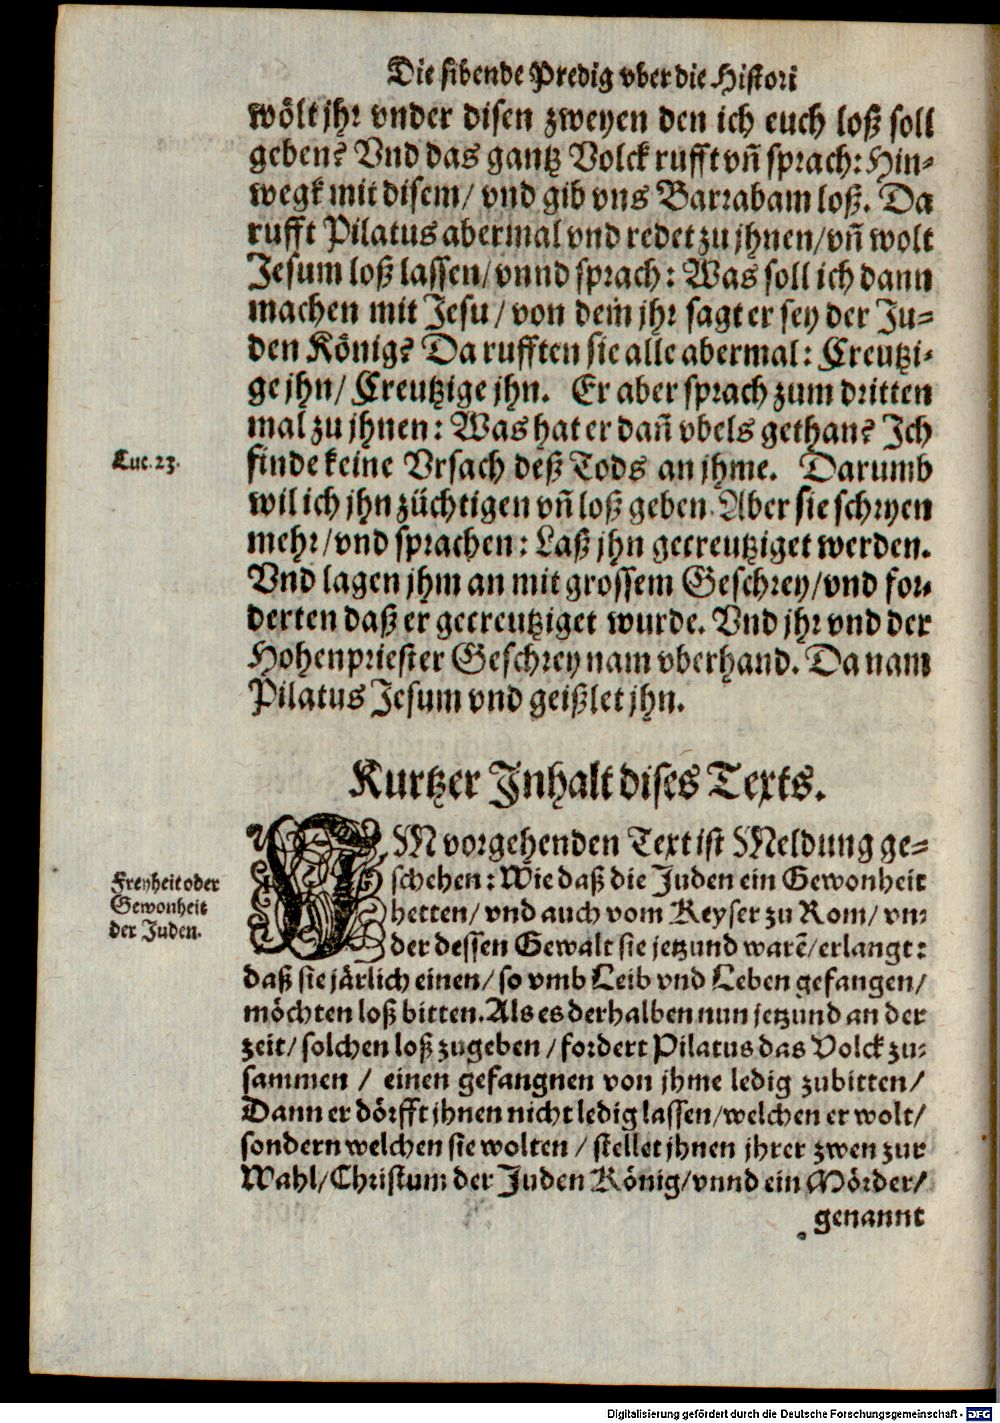 Die sibende Predig vber die Histori
wölt jhr vnder disen zweyen den ich euch loß soll
geben? Vnd das gantz Volck rufft vñ sprach: Hin-
wegk mit disem/ vnd gib vns Barrabam loß. Da
rufft Pilatus abermal vnd redet zu jhnen/ vñ wolt
Jesum loß lassen/ vnnd sprach: Was soll ich dann
machen mit Jesu/ von dem jhr sagt er sey der Ju-
den König? Da rufften sie alle abermal: Creutzi-
ge jhn/ Creutzige jhn. Er aber sprach zum dritten
mal zu jhnen: Was hat er dañ vbels gethan? Ich
Luc. 23.
finde keine Vrsach deß Tods an jhme. Darumb
wil ich jhn züchtigen vñ loß geben. Aber sie schryen
mehr/ vnd sprachen: Laß jhn gecreutziget werden.
Vnd lagen jhm an mit grossem Geschrey/ vnd for-
derten daß er gecreutziget wurde. Vnd jhr vnd der
Hohenpriester Geschrey nam vberhand. Da nam
Pilatus Jesum vnd geißlet jhn.
Kurtzer Jnhalt dises Texts.
JM vorgehenden Text ist Meldung ge-
Freyheit oder
Gewonheit
der Juden.
schehen: Wie daß die Juden ein Gewonheit
hetten/ vnd auch vom Keyser zu Rom/ vn-
der dessen Gewalt sie jetzund warē/ erlangt:
daß sie järlich einen/ so vmb Leib vnd Leben gefangen/
möchten loß bitten. Als es derhalben nun jetzund an der
zeit/ solchen loß zugeben/ fordert Pilatus das Volck zu-
sammen/ einen gefangnen von jhme ledig zubitten/
Dann er dörfft jhnen nicht ledig lassen/ welchen er wolt/
sondern welchen sie wolten/ stellet jhnen jhrer zwen zur
Wahl/ Christum der Juden König/ vnnd ein Mörder/
genannt
Digitalisierung gefördert durch die Deutsche Forschungsgemeinschaft - DFG